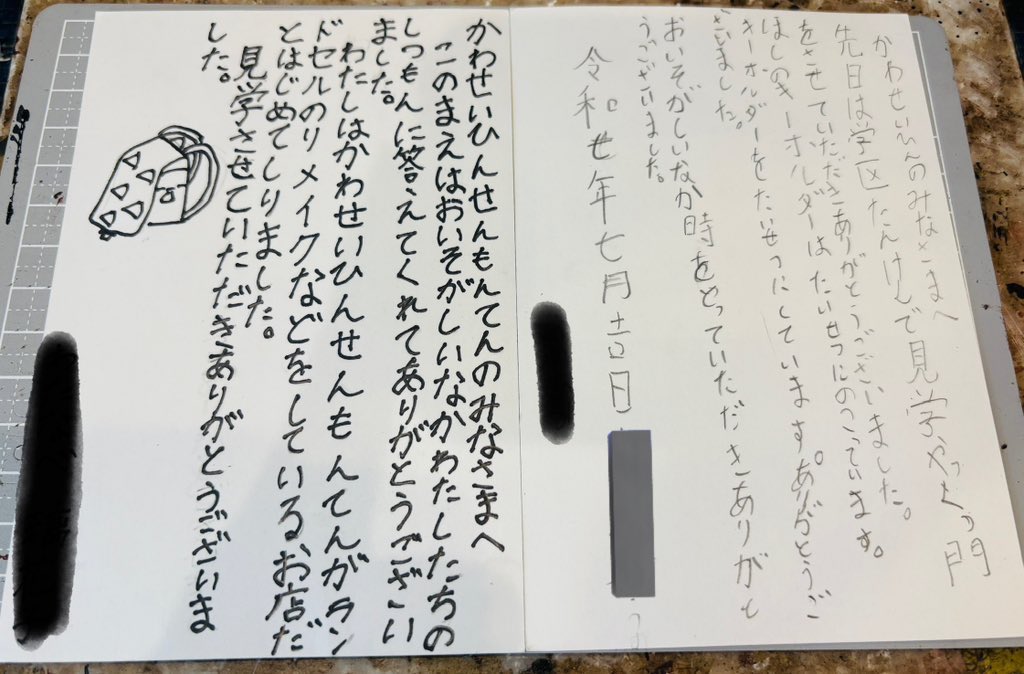 かわせいひんのみなさまへ
先日は学区たんけんで見学やしつ門
をさせていただきありがとうございました。
ほしのキーホルダーはたいせつにのこっています。
キーホルダーをたいせつにしています。ありがとうご
ざいました。
おいそがしいなか時をとっていただきありがと
うございました。
令和七年七月吉日
かわせいひんせんもんてんのみなさまへ
このまえはおいそがしいなかわたしたちの
しつもんに答えてくれてありがとうござい
ました。
わたしはかわせいひんせんもんてんがラン
ドセルのリメイクなどをしているお店だ
とはじめてしりました。
見学させていただきありがとうございま
した。